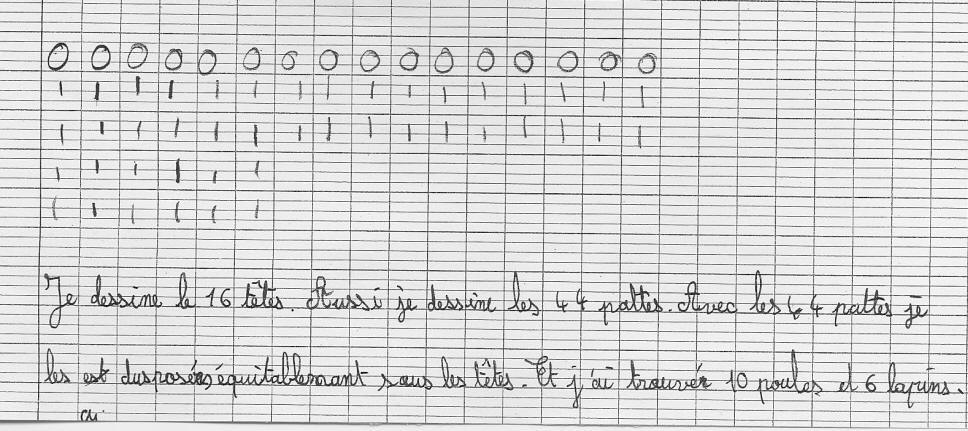 Je dessine le 16 têtes. Aussi je dessine les 44 pattes. Avec les 44 pattes je
les est dusposées équitablemant sous les têtes. Et j'ai trouver 10 poules et 6 lapins.